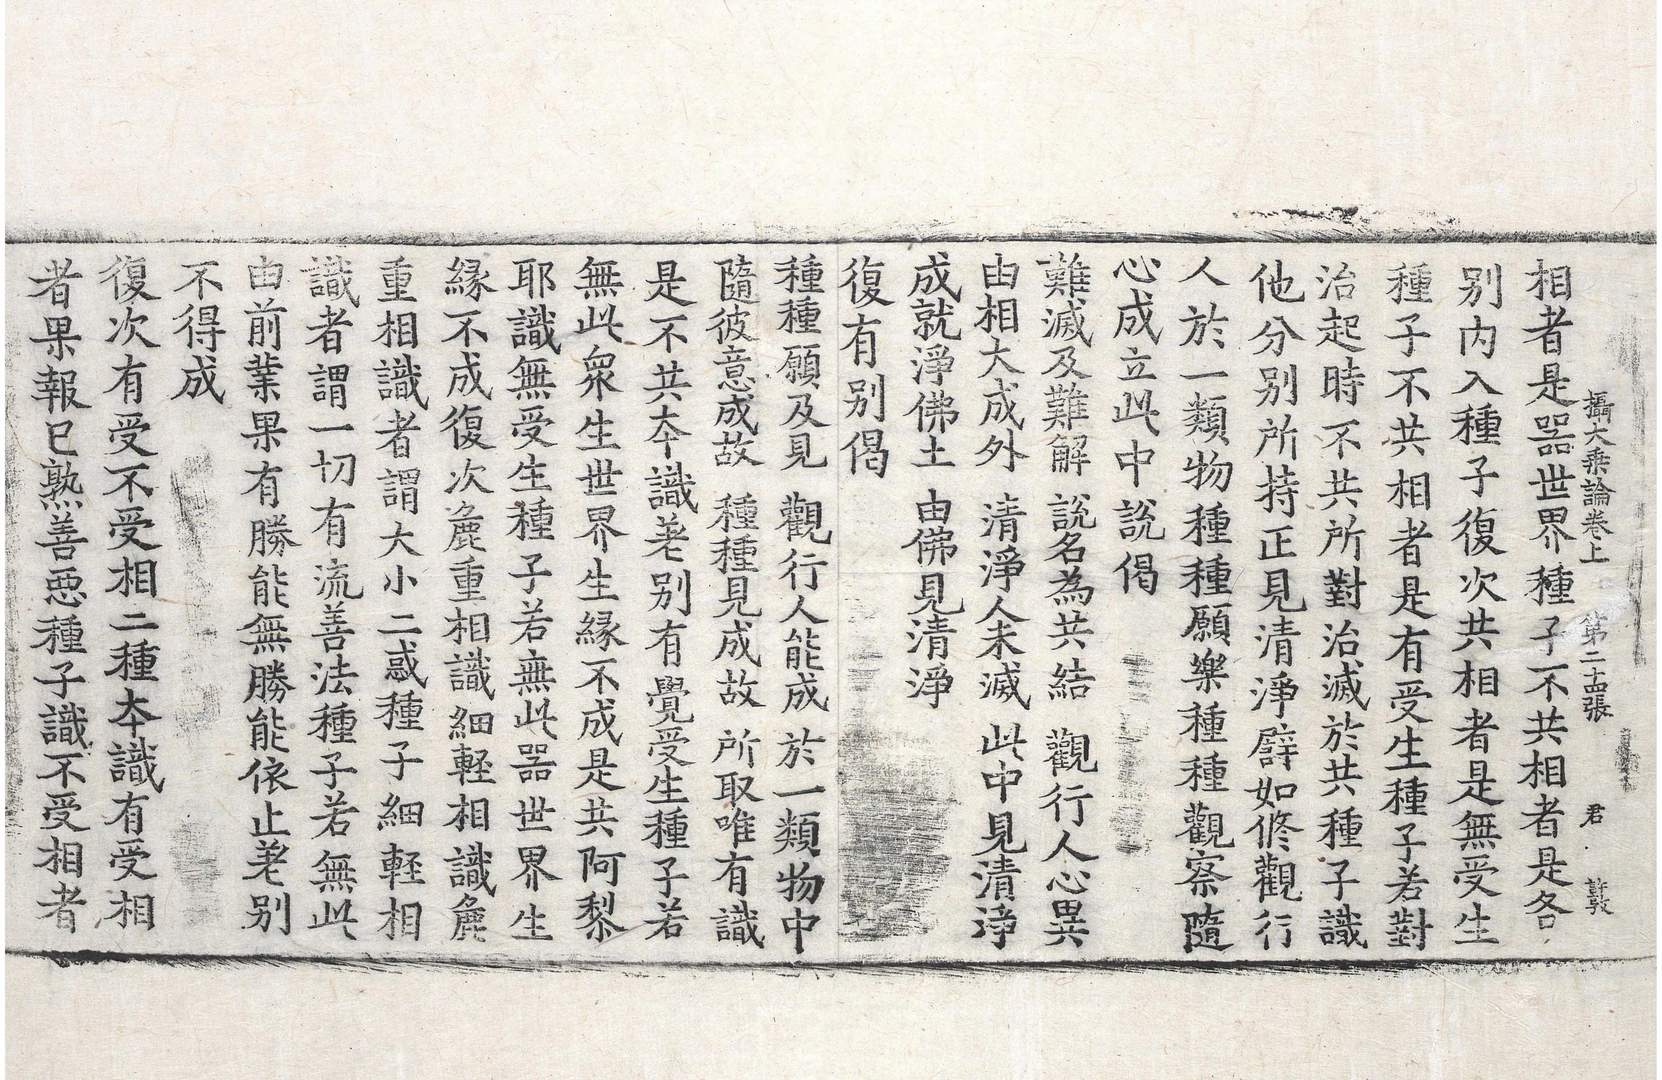 攝大乘論卷上 第二十四張 君 敦
相者是器世界種子不共相者是各
别内入種子復次共相者是無受生
種子不共相者是有受生種子若對
治起時不共所對治滅於共種子識
他分别所持正見清淨譬如修觀行
人於一類物種種願樂種種觀察隨
心成立此中說偈
難滅及難解 說名為共結 觀行人心異
由相大成外 清淨人未滅 此中見清淨
成就淨佛土 由佛見清淨
復有别偈
種種願及見 觀行人能成 於一類物中
隨彼意成故 種種見成故 所取唯有識
是不共本識差别有覺受生種子若
無此衆生世界生緣不成是共阿黎
耶識無受生種子若無此器世界生
緣不成復次麁重相識細輕相識麁
重相識者謂大小二惑種子細輕相
識者謂一切有流善法種子若無此
由前業果有勝能無勝能依止差别
不得成
復次有受不受相二種本識有受相
者果報已熟善惡種子識不受相者